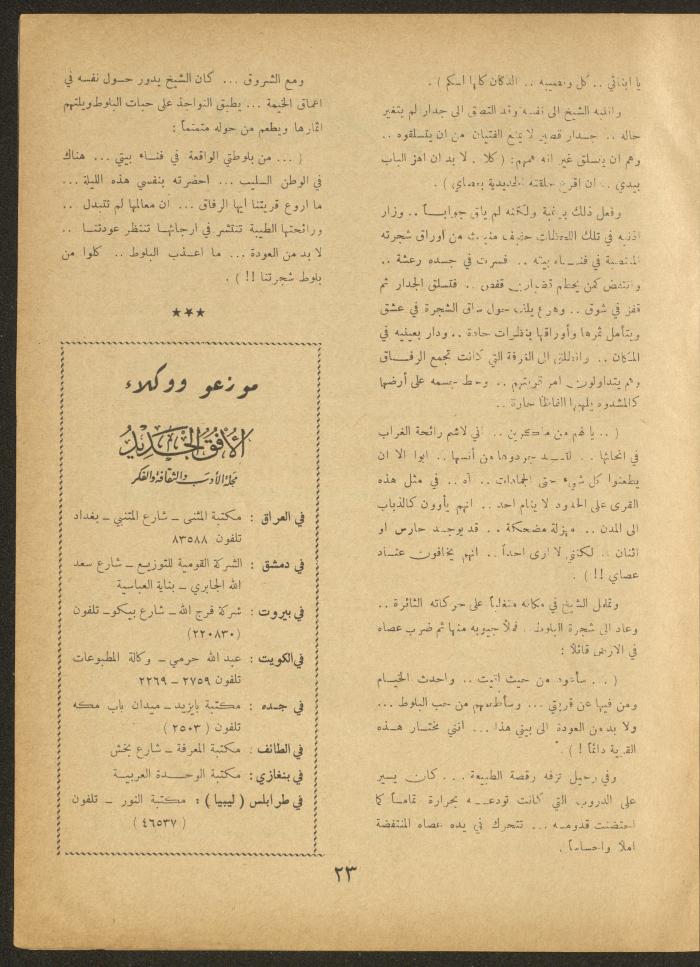 يا ابنائي .. كل ونصيبه .. الدكان كلها لكم ) .
وانتبه الشيخ الى نفسه وقد التصق الى جدار لم يتغير
حاله .. جدار قصير لا يمنع الفتيان من ان يتسلقوه ..
وهم ان يتسلق غير انه همهم: ( كلا . لا بد ان اهز الباب
بيدي .. ان اقرع حلقته الحديدية بعصاي ) .
وفعل ذلك برغبة ولكنه لم يلق جواباً .. وزار
اذنيه في تلك اللحظات حفيف منبعث من أوراق شجرته
المنتصبة في فنـاء بيته .. فسرت في جسده رعشة ..
وانتفض كمن يحطم قضبان قفص .. فتسلق الجدار ثم
قفز في شوق .. وهرع يلف حول ساق الشجرة في عشق
ويتأمل ثمرها وأوراقها بنظرات حادة .. ودار بعينيه في
المكان .. وانطلق الى الغرفة التي كانت تجمع الرفـاق
وهم يتداولون امر قريتهم .. وحط بجسمه على أرضها
كالمشدوه يلهبها الفاظا حارة ..
( .. يا لهم من ماكرين .. اني لاشم رائحة الغراب
في انحائها .. لقـد جردوها من أنسها .. ابوا الا ان
يطعنوا كل شيء حتى الجمادات .. آه .. في مثل هذه
القرى على الحدود لا ينام احد .. انهم يأوون كالذباب
الى المدن .. مهزلة مضحكة .. قد يوجـد حارس او
اثنان .. لكنني لا ارى احداً .. انهم يخافون عنـاد
عصاي !! ) .
وتململ الشيخ في مكانه متغلباً على حركاته الثائرة ..
وعاد الى شجرة البلوط . فملأ جيوبه منها ثم ضرب عصاه
في الارض قائلاً :
( .. سأعود من حيث اتيت .. واحدث الخيـام
ومن فيها عن قريتي ... وسأطعمهم من حب البلوط ...
ولا بد من العودة الى بيتي هذا ... انني مختـار هـذه
القرية دائماً ! ) .
وفي رحيل تزفه رقصة الطبيعة ... كان يسير
على الدروب التي كانت تودعـه بحرارة تماماً كما
احتضنت قدومـه ... تتحرك في يده عصاه المنتفضة
املاً واحساساً .
ومع الشروق ... كان الشيخ يدور حـول نفسه في
اعماق الخيمة ... يطبق النواجذ على حبات البلوط ويلتهم
اثمارها ويطعم من حوله متمتماً :
( ... من بلوطتي الواقعة في فنـاء بيتي ... هناك
في الوطن السليب ... احضرته بنفسي هذه الليلة ...
ما اروع قريتنا أيها الرفاق ... ان معالمها لم تتبدل ..
ورائحتها الطيبة تنتشر في ارجائهـا تنتظر عودتنـا ..
لا بد من العودة ... ما اعـذب البلوط .. كلوا من
بلوط شجرتنا !! ) .
★★★
موزعو ووكلاء
الأفق الجديد
مجلة الأدب والثقافة والفكر
في العراق : مكتبة المثنى ــ شارع المتنبي ــ بغداد
تلفون ٨٣٥٨٨
في دمشق : الشركة القومية للتوزيـع ــ شارع سعد
الله الجابري ــ بناية العباسية
في بيروت : شركة فرج الله ــ شارع بيكو ــ تلفون
(٢٢٠٨٣٠)
في الكويت : عبد الله حرمي ــ وكالة المطبوعات
تلفون ٢٧٥٩ ــ ٢٢٦٩
في جـده : مكتبة بايزيد ــ ميدان باب مكه
تلفون ( ٢٥٠٣ )
في الطائف : مكتبة المعرفة ــ شارع بخش
في بنغازي : مكتبة الوحـدة العربيـة
في طرابلس ( ليبيا ) : مكتبة النور ــ تلفون
( ٤٦٥٣٧ )
٢٣